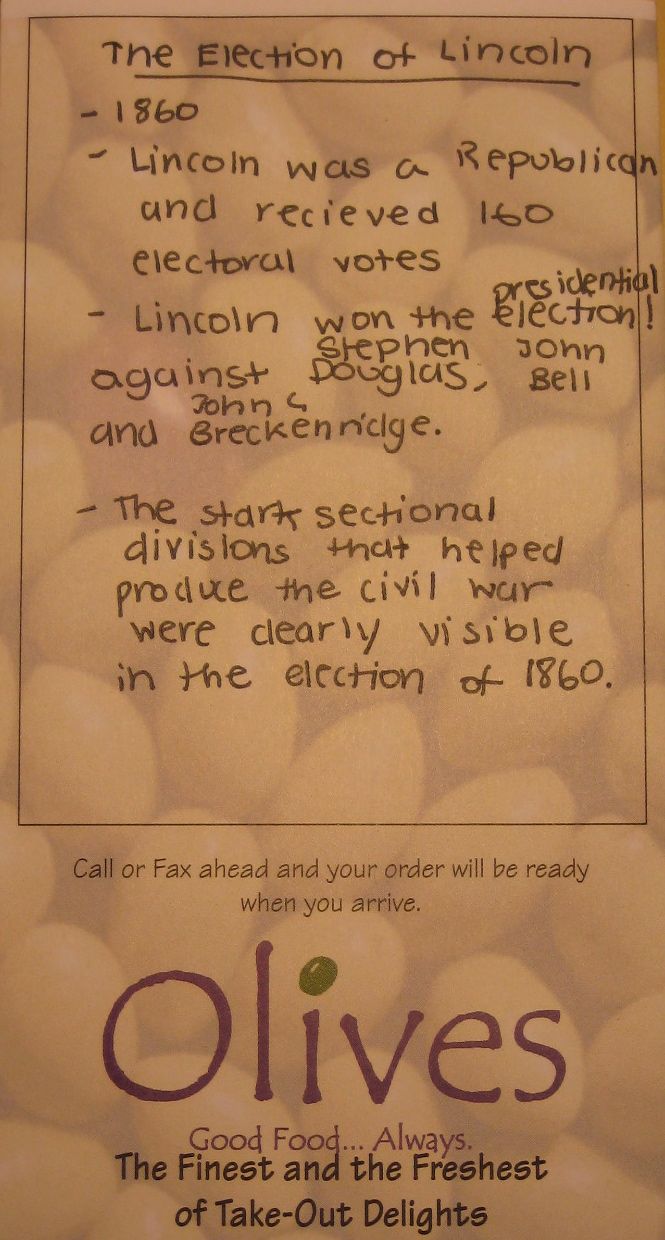 The Election of Lincoln
- 1860
- Lincoln was a Republican
and recieved 160
electoral votes
presidential
- Lincoln won the election!
Stephen John
against Douglas, Bell
John C
and Breckenridge.
- The stark sectional
divisions that helped
produce the civil war
were clearly visible
in the election of 1860.
Call or Fax ahead and your order will be ready
when you arrive.
Olives
Good Food... Always.
The Finest and the Freshest
of Take-Out Delights